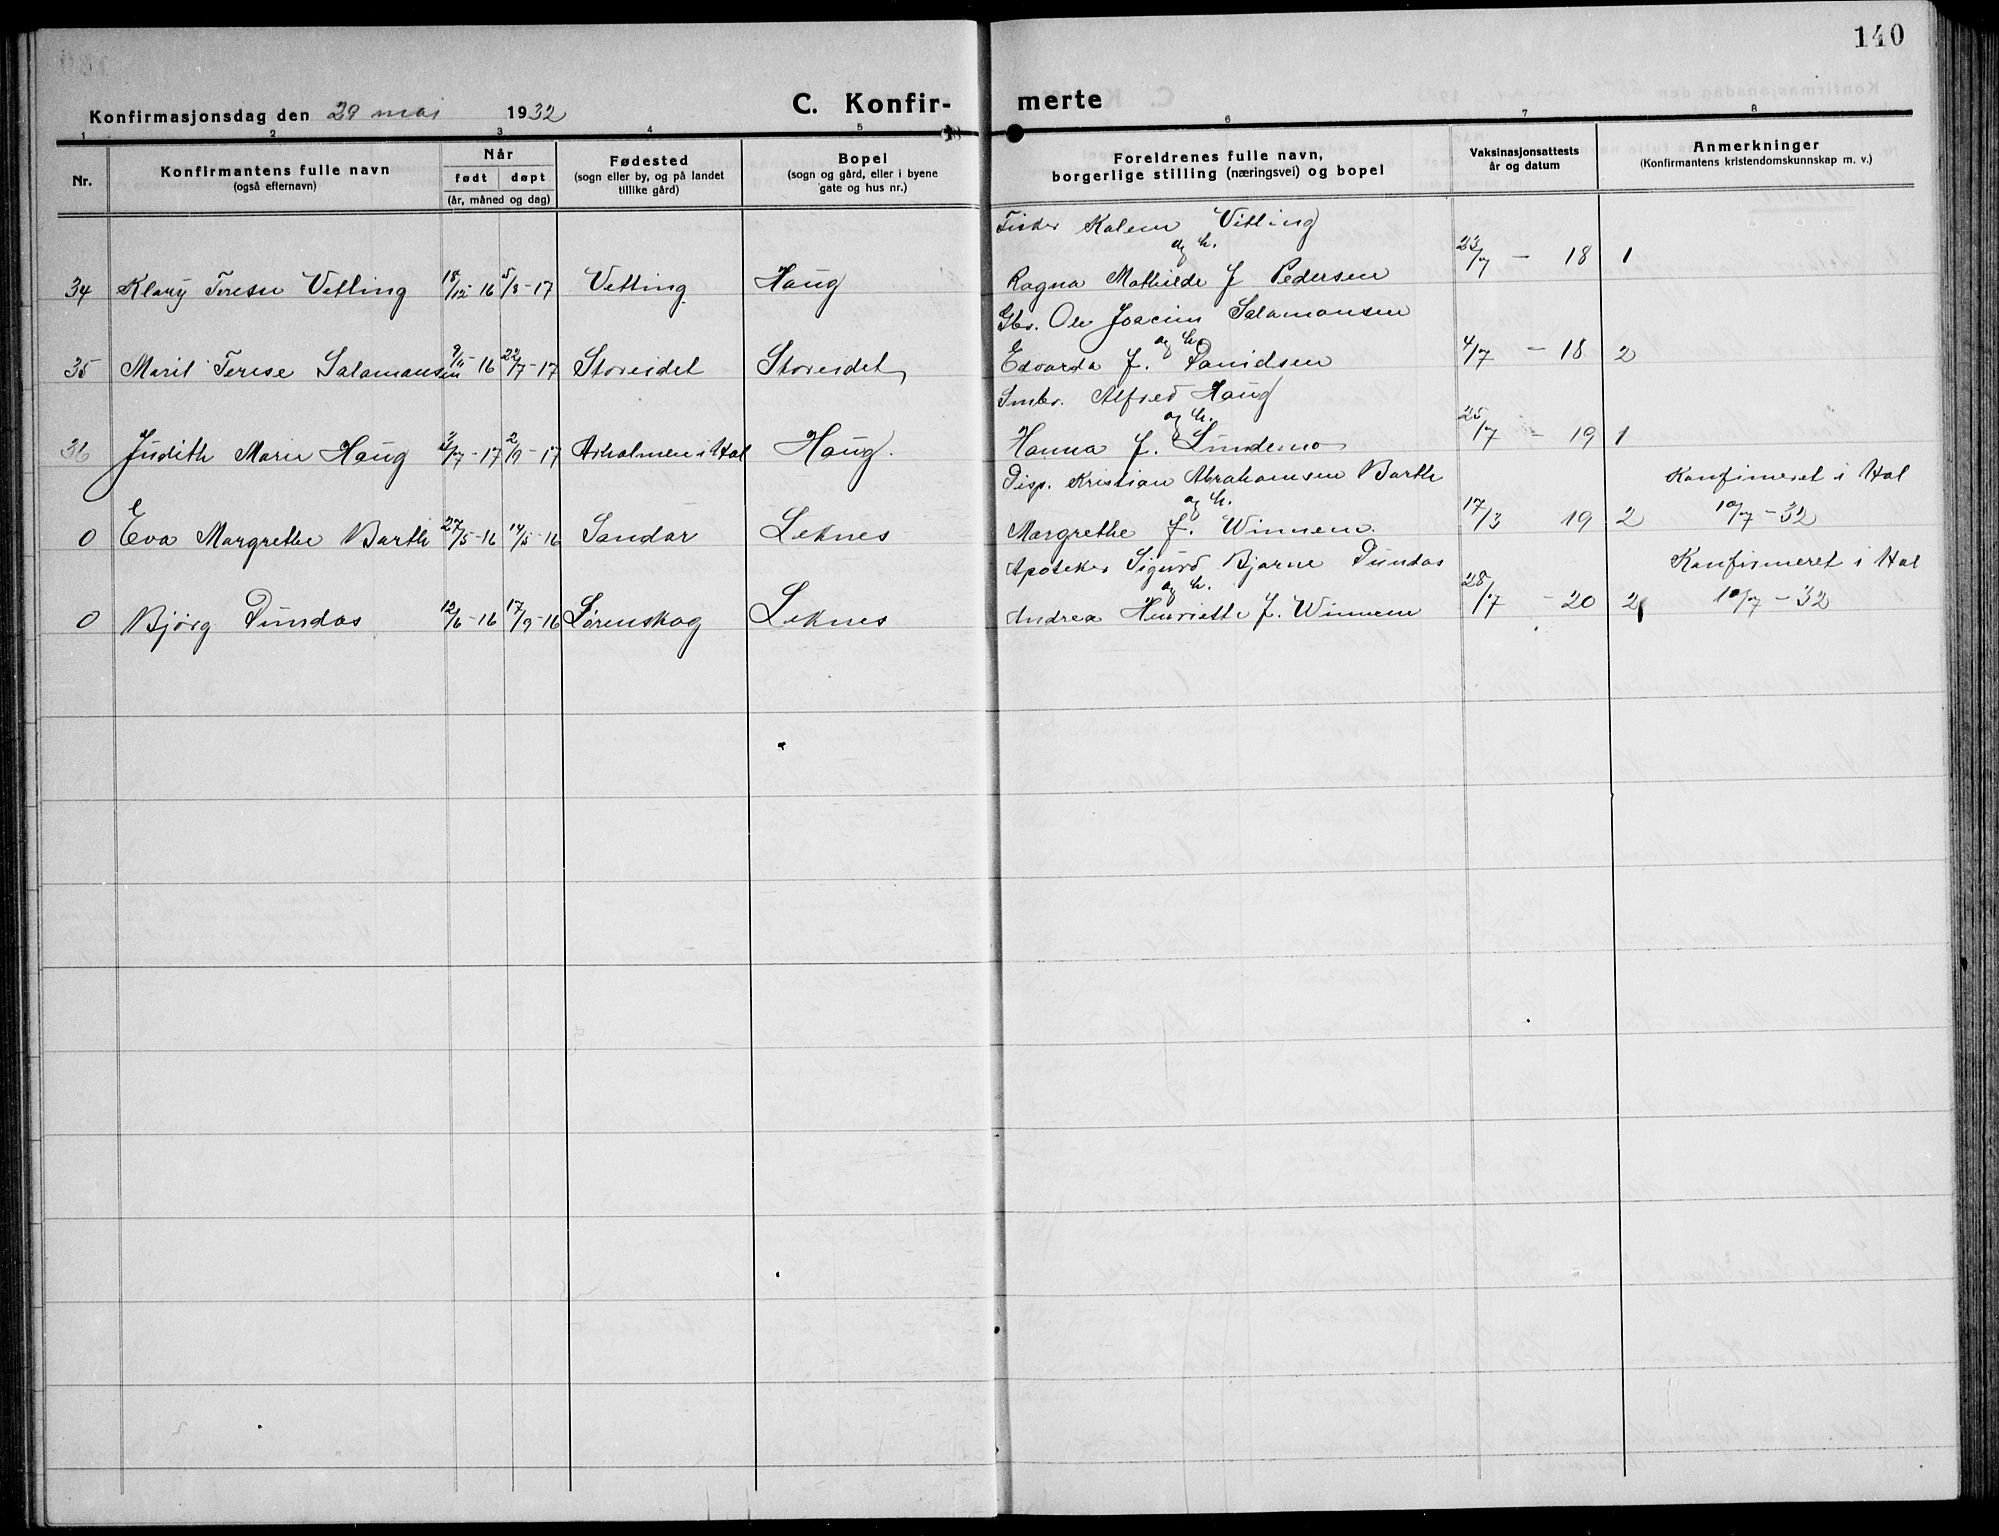 140
Konfirmasjonsdag den 29 mai 1932 C. Konfir- merte
1 2 3 4 5 6 7 8
Nr. Konfirmantens fulle navn (også efternavn) Når født døpt (år, måned og dag) Fødested (sogn eller by, og på landet tillike gård) Bopel (sogn og gård, eller i byene gate og hus nr.) Foreldrenes fulle navn, borgerlige stilling (næringsvei) og bopel Vaksinasjonsattests år og datum Anmerkninger (Konfirmantens kristendomskunnskap m. v.)
Fisker Kalem Vetting
og h.
34 Klary Terese Vetting 18/12-16 5/8-17 Vetting Haug Ragna Mathilde f Pedersen 23/7 - 18 1
Gbr. Ole Joacim Salamonsen
og h.
35 Maril Terese Salamonsen 9/11-16 22/7-17 Storeidet Storeidet Edvarda f. Danidsen 4/7 - 18 2
Smbr. Alfred Haug
og h.
36 Judith Marie Haug 3/7-17 2/9-17 i Hol Haug. Hanna f. Lindemo 25/7 - 19 1
Disp. Kristian Abrahamsen Barth Konfirmeret i Hol
og h.
0 Eva Margrethe Barth 27/5-16 14/5-16 Sandar Leknes Margrethe f. Winnem 17/3 19 2 10/7-32
Apoteker Sigurd Bjarne Dundas Konfirmeret i Hol
og h.
0 Bjørg Dundas 12/6-16 17/9-16 Lørenskog Leknes Andrea Henriette f. Winnem 28/7 - 20 2 10/7-32